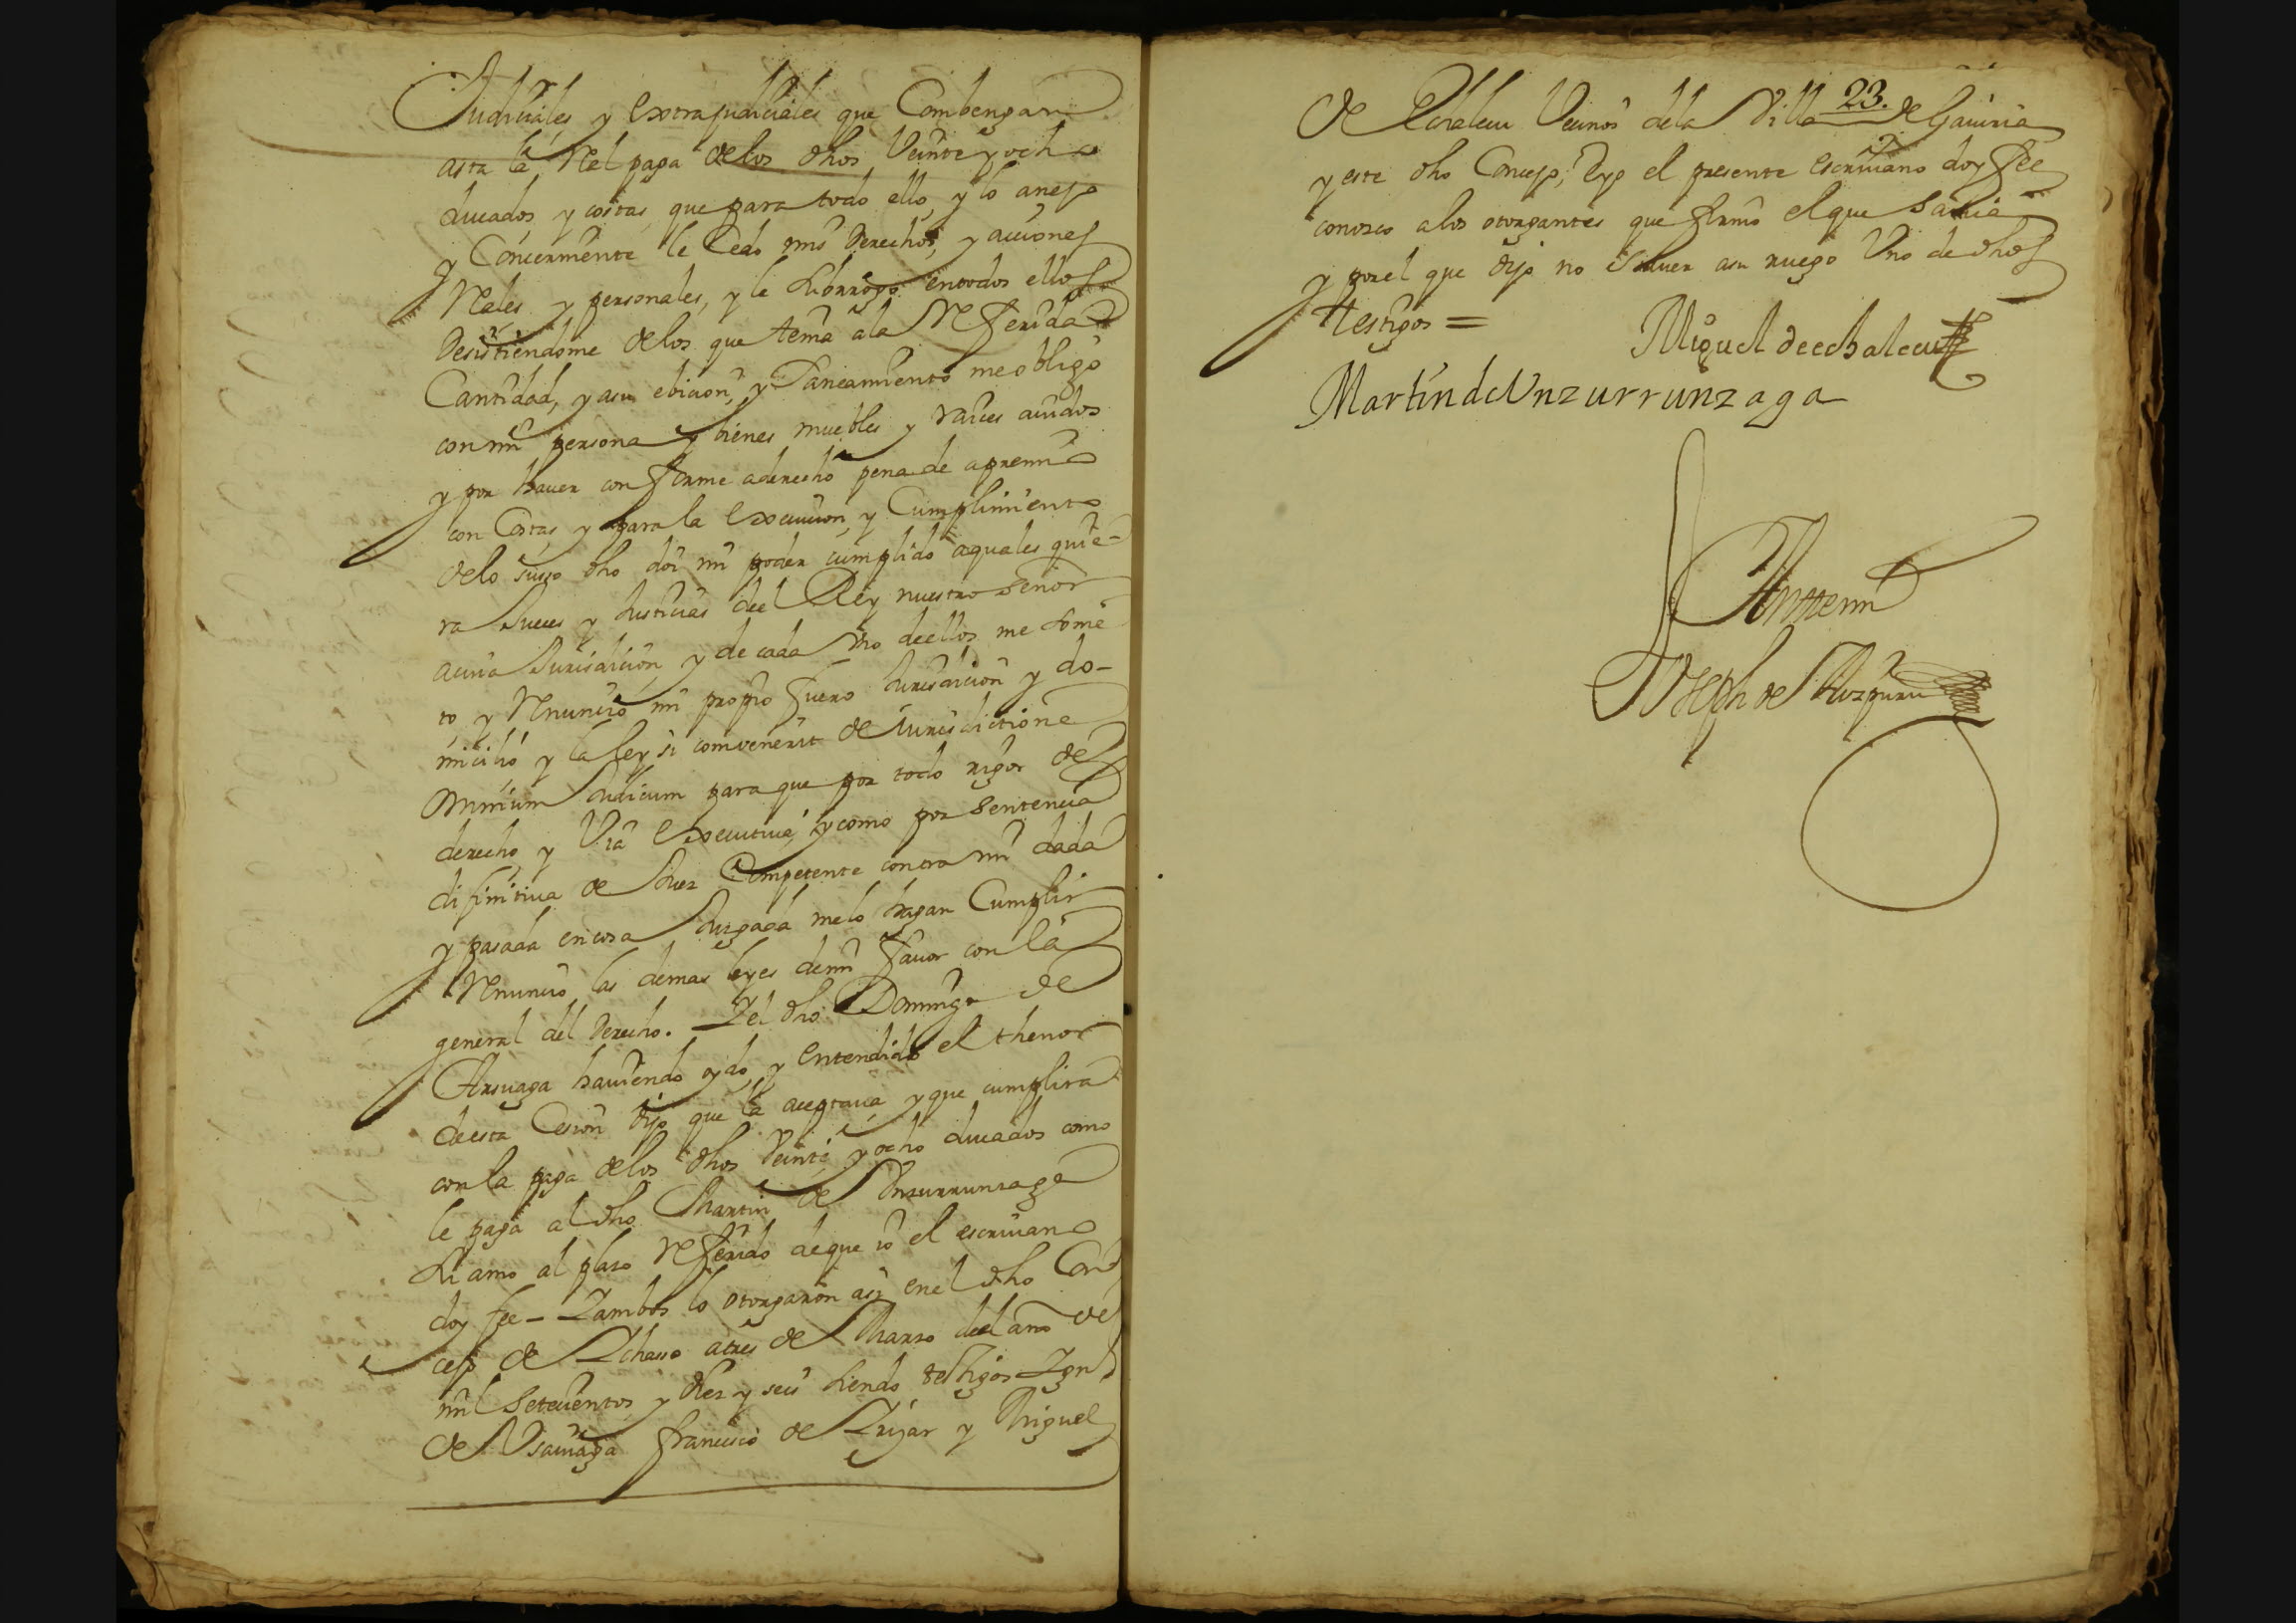 Judiciales y extrajudiciales que Combengan
asta la Rel paga de los dhos Veinte y ocho
ducados, y costas, que para todo ello, y lo anejo
y Concerniente le Cedo mis derechos, y acciones
Reales y personales, y le subrrogo en todos ellos
desistiendome de los que tenia a la Referida
Cantidad, y a su ebicion, y saneamiento me obligo
con mi persona y bienes muebles y raices auidos
y por hauer conforme a derecho pena de apremio
con Costas y para la execucion, y Cumplimiento
de lo suso dho doi mi poder cumplido a quales quie-
ra Jueces y Justicias del Rey nuestro señor
a cuia Jurisdicion, y de cada vno de ellos, me some
to, y Renuncio mi propio fuero Jurisdicion y do-
micilio y la ley si convenerit de iurisdictione
omnium Judicum para que por todo rigor de
derecho, y Via executiua, y como por sentencia
difinitiua de Juez Competente contra mi dada
y pasada en cosa Juzgada me lo hagan Cumplir
Renuncio las demas leyes de mi fauor con la
general del derecho. Y el dho Domingo de
Arsuaga hauiendo oydo, y entendido el thenor
de esta Cesion dijo que la aceptaua y que cumplira
con la paga de los dhos Veinte y ocho ducados como
le paga al dho Martin de Vnzurrunzaga
su amo al plazo Referido de que io el escriuano
doy fee – Y ambos lo otorgaron asi en el dho Con
cejo de Ychasso a tres de Marzo del año de
mil Setecientos y diez y seis siendo testigos Ygn.º
de Vsauiaga francisco de Yrijar y Miguel
23.
de Echalecu Vecinos de la Villa de Gauiria
y este dho Concejo, e yo el presente escriuano doy fee
conosco a los otorgantes que firmo el que sauia
y por el que dijo no sauer a su ruego Vno de dhos
testigos =
Miguel de echalecu
Martin de Vnzurrunzaga
Ante mi
Joseph de Aizpuru